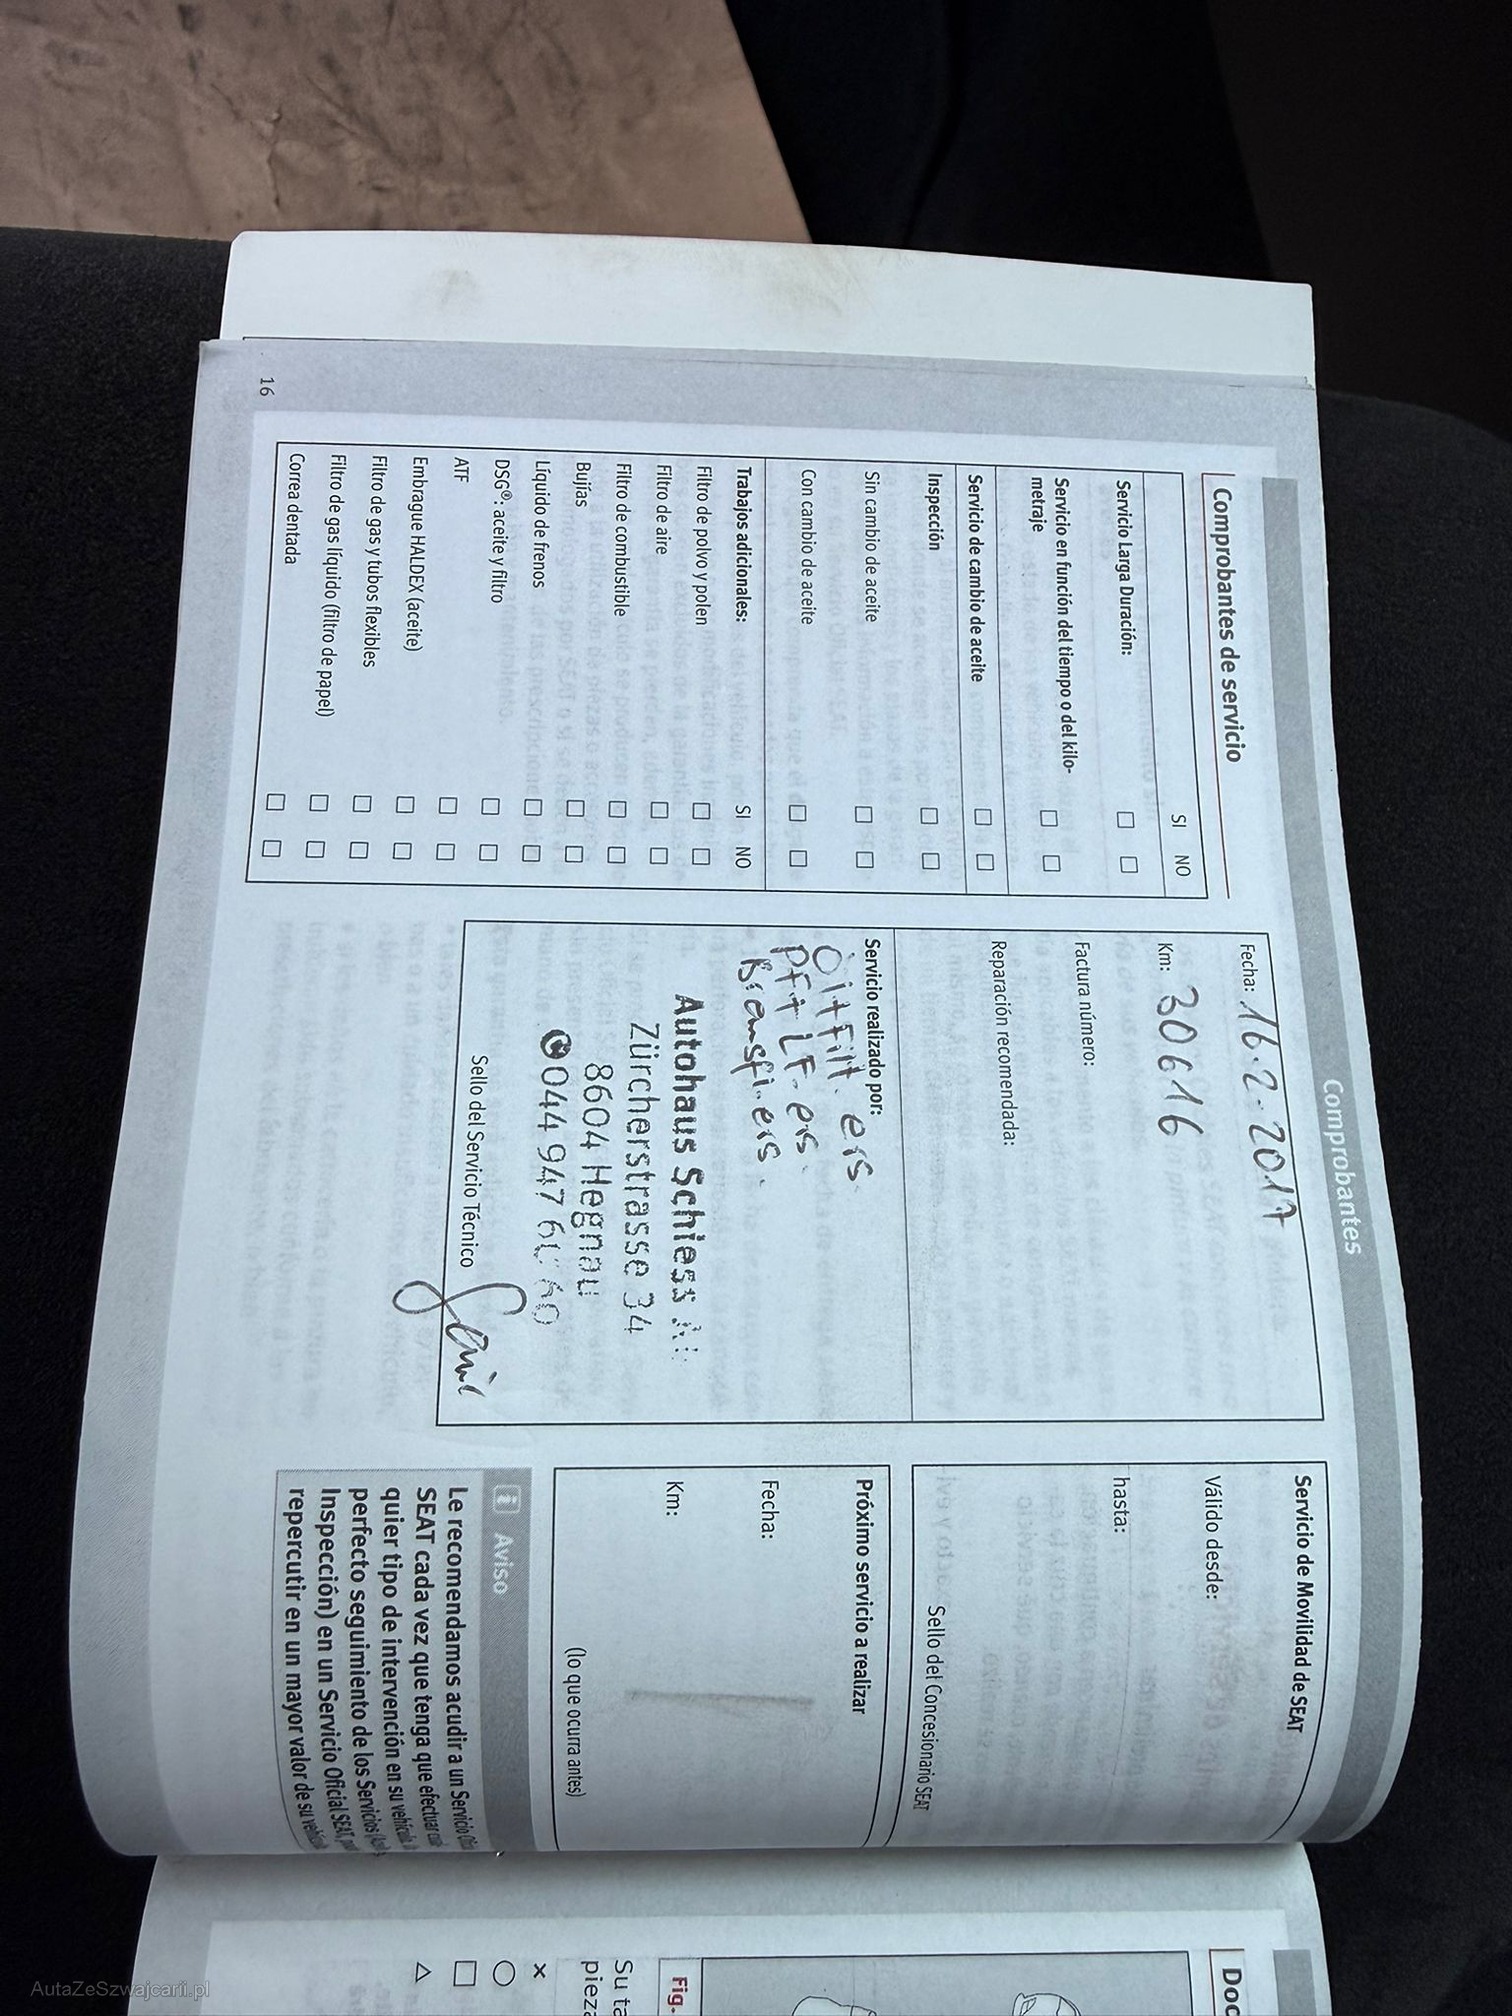 Comprobantes
Comprobantes de servicio
SI NO
Servicio Larga Duración: □ □
Servicio en función del tiempo o del kilo-
metraje □ □
Servicio de cambio de aceite □ □
Inspección □ □
Sin cambio de aceite □ □
Con cambio de aceite □ □
Trabajos adicionales: SI NO
Filtro de polvo y polen □ □
Filtro de aire □ □
Filtro de combustible □ □
Bujías □ □
Líquido de frenos □ □
DSG®: aceite y filtro □ □
ATF □ □
Embrague HALDEX (aceite) □ □
Filtro de gas y tubos flexibles □ □
Filtro de gas líquido (filtro de papel) □ □
Correa dentada □ □
16
Fecha: 16.2.2017
Km: 30616
Factura número:
Reparación recomendada:
Servicio realizado por:
Autohaus Schiess
Zürcherstrasse 34
8604 Hegnau
Sello del Servicio Técnico
Servicio de Movilidad de SEAT
Válido desde:
hasta:
Sello del Concesionario SEAT
Próximo servicio a realizar
Fecha:
Km:
(lo que ocurra antes)
i Aviso
Le recomendamos acudir a un Servicio
SEAT cada vez que tenga que efectuar
quier tipo de intervención en su vehículo
perfecto seguimiento de los Servicios
Inspección) en un Servicio Oficial SEAT,
repercutir en un mayor valor de su
Doc
Fig.
Su ta
pieza
AutaZeSzwajcarii.pl